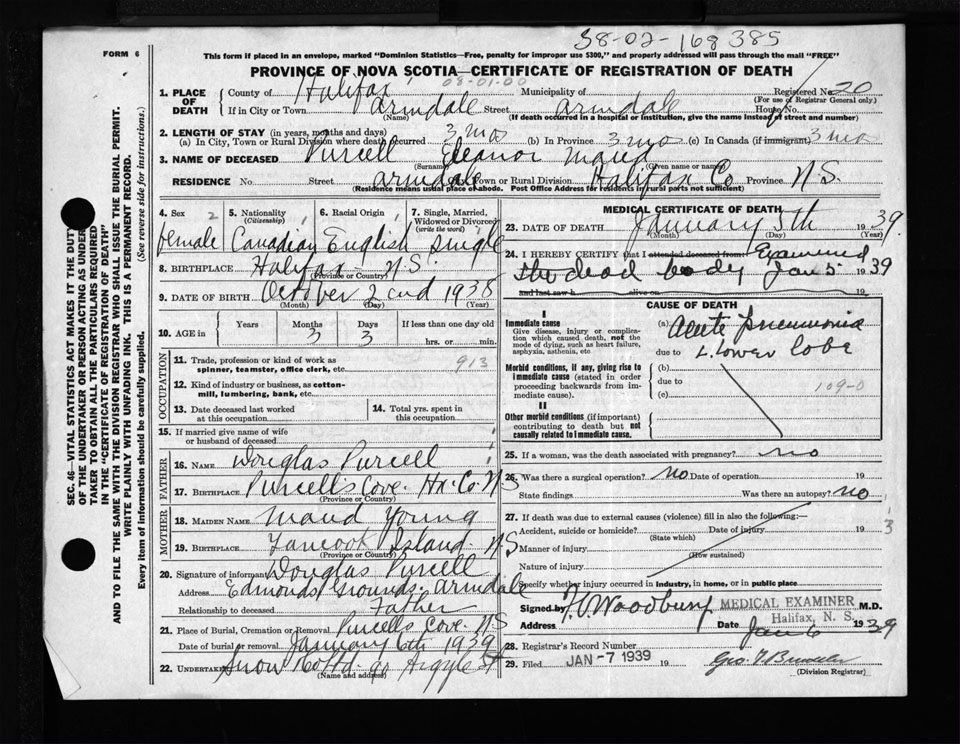 38-02-168385
FORM 6
This form if placed in an envelope, marked "Dominion Statistics—Free, penalty for improper use $300," and properly addressed will pass through the mail "FREE"
PROVINCE OF NOVA SCOTIA—CERTIFICATE OF REGISTRATION OF DEATH
08-01-00
1. PLACE OF DEATH County of Halifax Municipality of Registered No. 20
(For use of Registrar General only)
If in City or Town Armdale Street Armdale House No.
(Name) (If death occurred in a hospital or institution, give the name instead of street and number)
2. LENGTH OF STAY (in years, months and days)
(a) In City, Town or Rural Division where death occurred 3 mo (b) In Province 3 mo (c) In Canada (if immigrant) 3 mo
3. NAME OF DECEASED Purcell Eleanor Maud
(Surname) (Given name or names)
RESIDENCE No. Street Armdale City, Town or Rural Division Halifax Co Province N.S.
(Residence means usual place of abode. Post Office Address for residents in rural parts not sufficient)
4. Sex 2 Female
5. Nationality (Citizenship) Canadian
6. Racial Origin English
7. Single, Married, Widowed or Divorced (write the word) Single
8. BIRTHPLACE Halifax N.S.
(Province or Country)
9. DATE OF BIRTH October 2nd 1938
(Month) (Day) (Year)
10. AGE in Years Months 3 Days 3 If less than one day hrs. or min.
OCCUPATION
11. Trade, profession or kind of work as spinner, teamster, office clerk, etc. 913
12. Kind of industry or business, as cotton-mill, lumbering, bank, etc.
13. Date deceased last worked at this occupation
14. Total yrs. spent in this occupation
15. If married give name of wife or husband of deceased
FATHER
16. NAME Douglas Purcell
17. BIRTHPLACE Purcell's Cove. Hx. Co. N.S
(Province or Country)
MOTHER
18. MAIDEN NAME Maud Young
19. BIRTHPLACE Tancook Island N.S
(Province or Country)
20. Signature of informant Douglas Purcell
Address Edmonds Grounds. Armdale
Relationship to deceased Father
21. Place of Burial, Cremation or Removal Purcells Cove. N.S
Date of burial or removal January 6th 1939
22. UNDERTAKER Snow Co Ltd. 90 Argyle St
(Name and address)
MEDICAL CERTIFICATE OF DEATH
23. DATE OF DEATH January 5th 1939.
(Month) (Day) (Year)
24. I HEREBY CERTIFY that I attended deceased from: Examined
the dead body Jan 5 1939
and last saw h alive on 19
CAUSE OF DEATH
I
Immediate cause
Give disease, injury or complication which caused death, not the mode of dying, such as heart failure, asphyxia, asthenia, etc
(a) Acute Pneumonia
due to L. Lower lobe
Morbid conditions, if any, giving rise to immediate cause (stated in order proceeding backwards from immediate cause).
(b)
due to 109-0
(c)
II
Other morbid conditions (if important) contributing to death but not causally related to immediate cause.
25. If a woman, was the death associated with pregnancy? no
26. Was there a surgical operation? no Date of operation 19
State findings Was there an autopsy? no
27. If death was due to external causes (violence) fill in also the following:—
Accident, suicide or homicide? Date of injury 19
(State which)
3
Manner of injury
(How sustained)
Nature of injury
Specify whether injury occurred in industry, in home, or in public place
Signed by F.V. Woodbury MEDICAL EXAMINER M.D.
Halifax, N. S.
Address Date Jan 6 1939
28. Registrar's Record Number
29. Filed JAN -7 1939 19
(Division Registrar)
SEC. 46—VITAL STATISTICS ACT MAKES IT THE DUTY
OF THE UNDERTAKER OR PERSON ACTING AS UNDER-
TAKER TO OBTAIN ALL THE PARTICULARS REQUIRED
IN THE "CERTIFICATE OF REGISTRATION OF DEATH"
AND TO FILE THE SAME WITH THE DIVISION REGISTRAR WHO SHALL ISSUE THE BURIAL PERMIT.
WRITE PLAINLY WITH UNFADING INK. THIS IS A PERMANENT RECORD.
Every item of information should be carefully supplied. (See reverse side for instructions.)